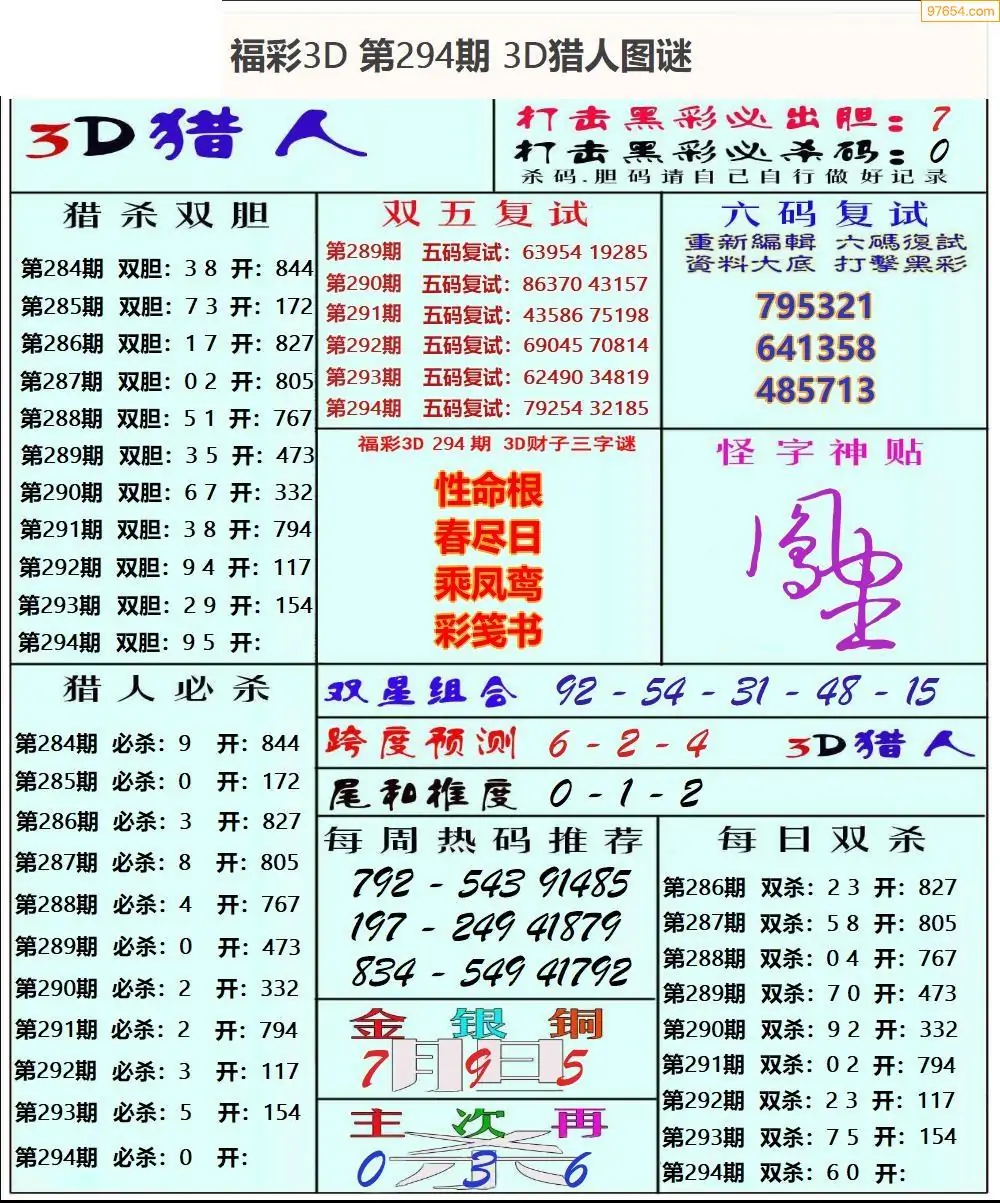 97654.com
福彩3D 第294期 3D猎人图谜
3D猎人
打击黑彩必出胆：7
打击黑彩必杀码：0
杀码.胆码请自己自行做好记录
猎杀双胆
第284期 双胆：3 8 开：844
第285期 双胆：7 3 开：172
第286期 双胆：1 7 开：827
第287期 双胆：0 2 开：805
第288期 双胆：5 1 开：767
第289期 双胆：3 5 开：473
第290期 双胆：6 7 开：332
第291期 双胆：3 8 开：794
第292期 双胆：9 4 开：117
第293期 双胆：2 9 开：154
第294期 双胆：9 5 开：
双五复试
第289期 五码复试：63954 19285
第290期 五码复试：86370 43157
第291期 五码复试：43586 75198
第292期 五码复试：69045 70814
第293期 五码复试：62490 34819
第294期 五码复试：79254 32185
六码复试
重新編輯 六碼復試
資料大底 打擊黑彩
795321
641358
485713
福彩3D 294 期 3D财子三字谜
性命根
春尽日
乘凤鸾
彩笺书
怪字神贴
猎人必杀
第284期 必杀：9 开：844
第285期 必杀：0 开：172
第286期 必杀：3 开：827
第287期 必杀：8 开：805
第288期 必杀：4 开：767
第289期 必杀：0 开：473
第290期 必杀：2 开：332
第291期 必杀：2 开：794
第292期 必杀：3 开：117
第293期 必杀：5 开：154
第294期 必杀：0 开：
双星组合 92 - 54 - 31 - 48 - 15
跨度预测 6 - 2 - 4 3D猎人
尾和推度 0 - 1 - 2
每周热码推荐
792 - 543 91485
197 - 249 41879
834 - 549 41792
金 银 铜
胆
7 9 5
主 次 再
杀
0 3 6
每日双杀
第286期 双杀：2 3 开：827
第287期 双杀：5 8 开：805
第288期 双杀：0 4 开：767
第289期 双杀：7 0 开：473
第290期 双杀：9 2 开：332
第291期 双杀：0 2 开：794
第292期 双杀：2 3 开：117
第293期 双杀：7 5 开：154
第294期 双杀：6 0 开：